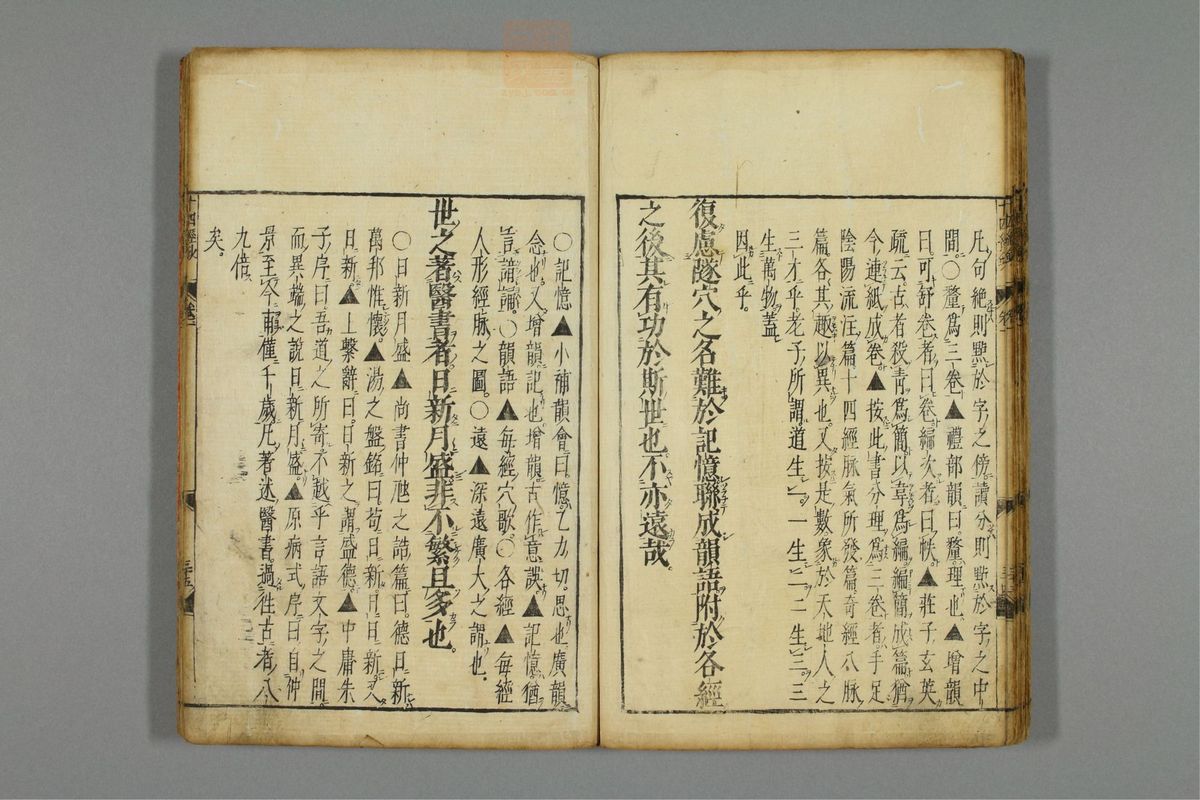 凡句絶則㸃於字之傍讀分則㸃於字之中
間○釐爲三卷▲禮部韻曰釐理也▲增韻
曰可舒卷者曰卷編次者曰帙▲莊子玄英
疏云古者殺靑爲簡以韋爲編編簡成篇猶
今連紙成卷▲按此書分理爲三卷者手足
陰陽流注篇十四經脉氣所發篇奇經八脉
篇各其趣以異也又按是數象於天地人之
三才乎老子所謂道生一一生二二生三三
生萬物蓋
因此乎
復慮隧穴之名難於記憶聯成韻語附於各經
之後其有功於斯世也不亦遠哉
○記憶▲小補韻會曰憶乙力切思也廣韻
念也又增韻記也增韻古作意誤▲記憶猶
言諳誦○韻語▲毎經穴歌○各經▲毎經
人形經脉之圖○遠▲深遠廣大之謂也
世之著醫書者日新月盛非不繁且多也
○日新月盛▲尚書仲虺之誥篇曰德日新
萬邦惟懷▲湯之盤銘曰苟日新日日新又
日新▲上繫辭曰日新之謂盛德▲中庸朱
子序曰吾道之所寄不越乎言語文字之間
而異端之說日新月盛▲原病式序曰自仲
景至今甫僅千歲凡著述醫書過徃古者八
九倍
矣